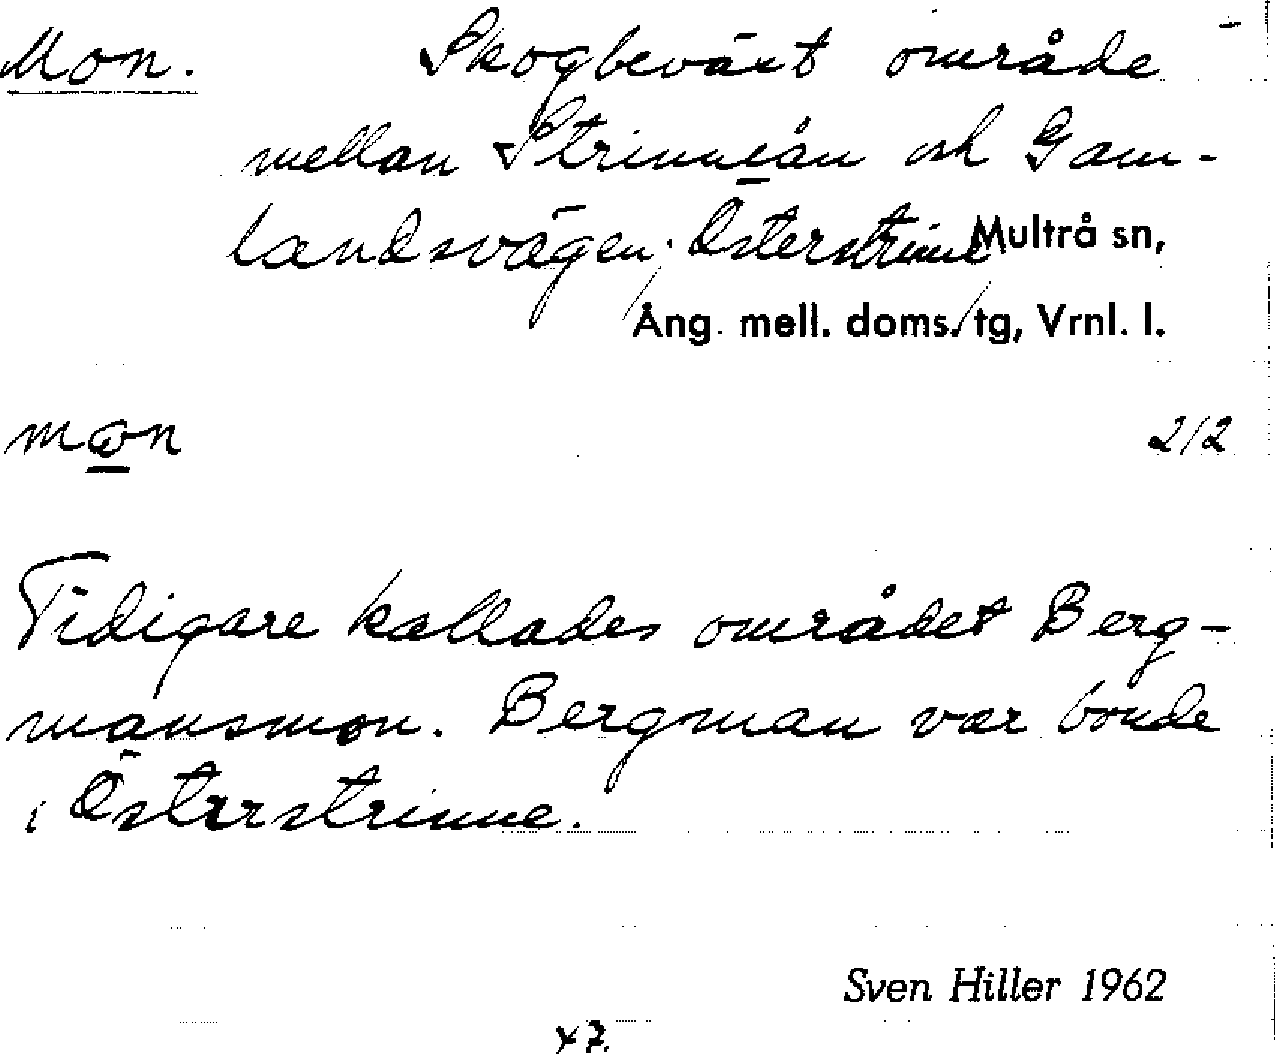 Mon. Skogbeväxt område
mellan Strinneån och Gam-
landsvägen; Österstrinne Multrå sn,
Ång. mell. doms./tg, Vrnl. l.
mon 2/2
Tidigare kallades området Berg-
mansmon. Bergman var bonde
i Österstrinne.
Sven Hiller 1962